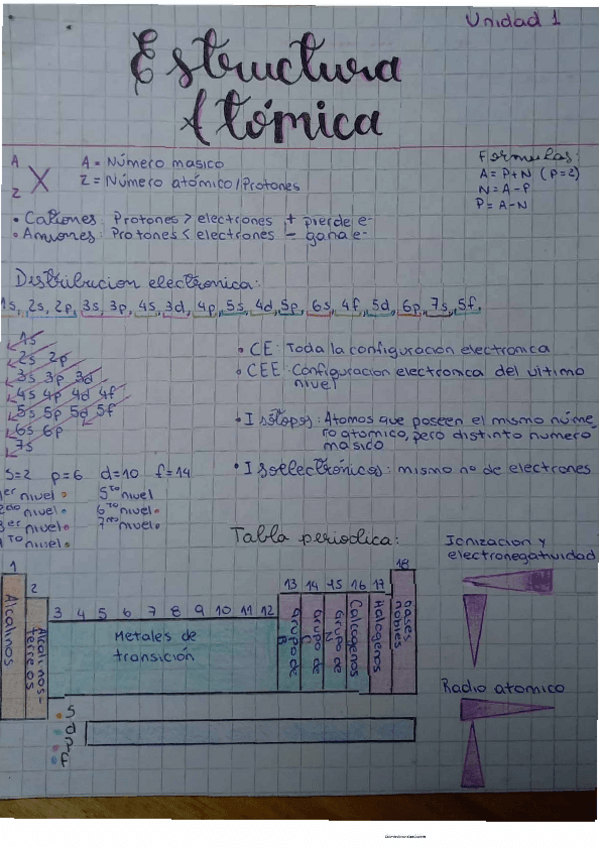 Unidad 1
Estructura
Atómica
A
Z X
A = Número masico
Z = Número atómico/Protones
Formulas:
A = P+N (P=Z)
N = A-P
P = A-N
• Cationes: Protones > electrones + pierde e-
• Aniones: Protones < electrones - gana e-
Distribucion electronica:
1s, 2s, 2p, 3s, 3p, 4s, 3d, 4p, 5s, 4d, 5p, 6s, 4f, 5d, 6p, 7s, 5f.
1s
2s 2p
3s 3p 3d
4s 4p 4d 4f
5s 5p 5d 5f
6s 6p
7s
• CE: Toda la configuracion electronica
• CEE: Configuracion electronica del ultimo
nivel
• Isótopos: Atomos que poseen el mismo núme
ro atomico, pero distinto numero
masico
• Isoelectrónicos: mismo no de electrones
S=2 p=6 d=10 f=14
1er nivel •
2do nivel •
3er nivel •
4to nivel •
5to nivel
6to nivel •
7mo nivel •
Tabla periodica:
Ionizacion y
electronegatividad
1 2 3 4 5 6 7 8 9 10 11 12 13 14 15 16 17 18
Alcalinos
Alcalinos-
terreos
Metales de
transición
Grupo de
B
Grupo de
C
Grupo de
N
Calcogenos
Halogenos
Gases
nobles
Radio atomico
• S
• d
• P
• F